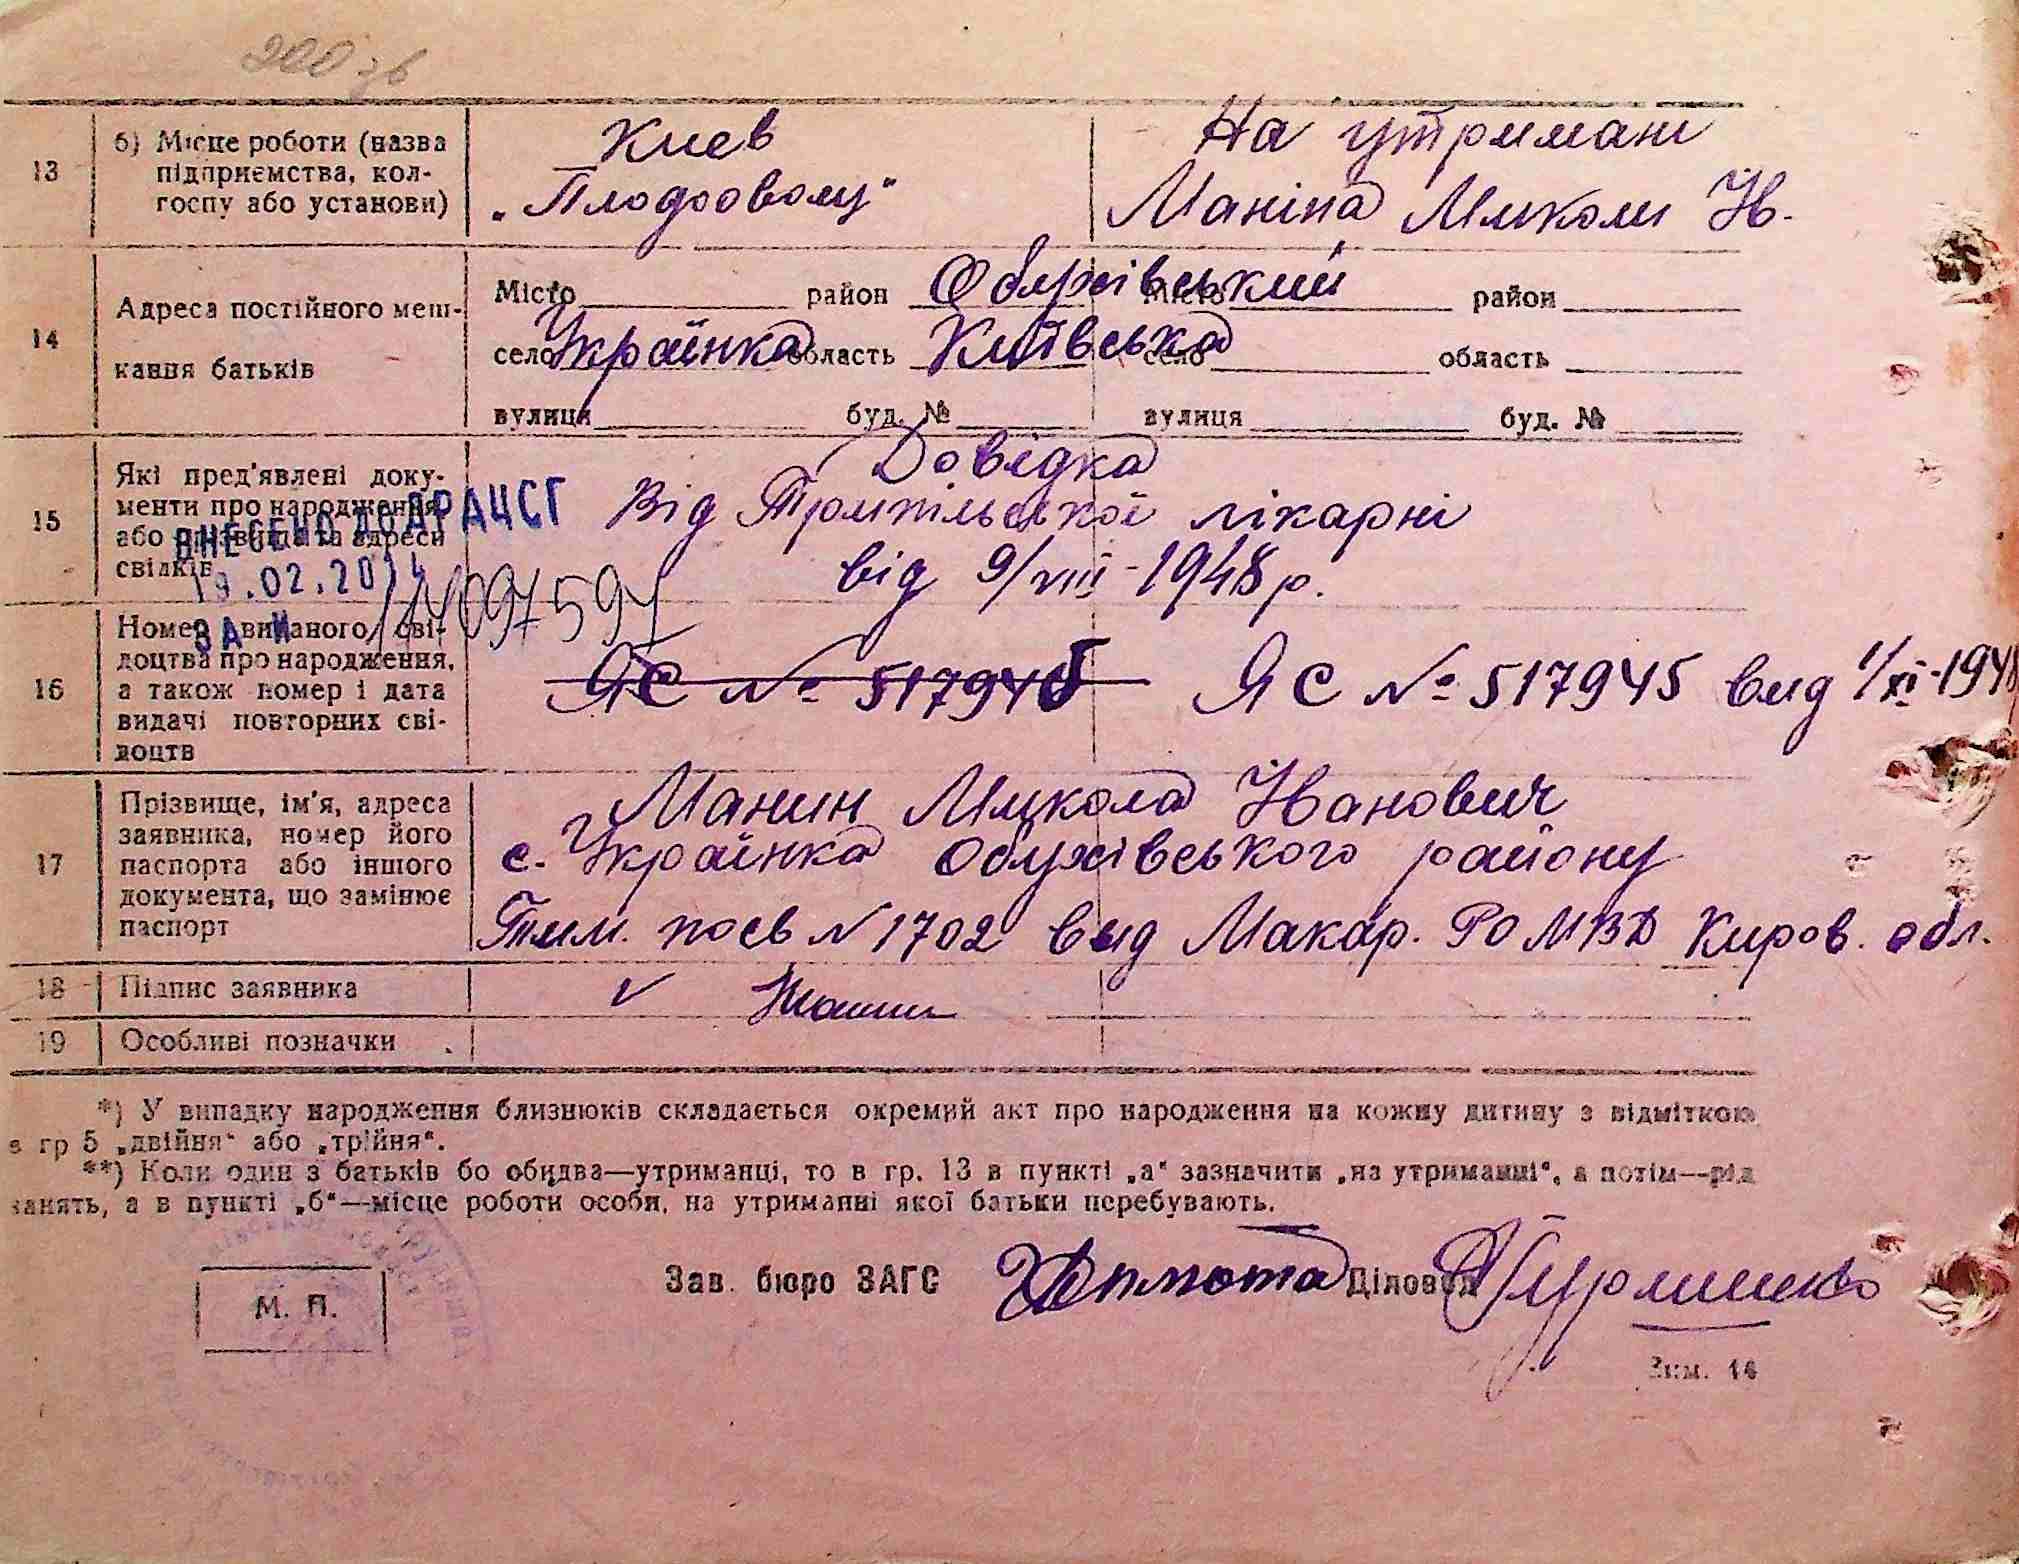 200 зв
13 б) Місце роботи (назва підприємства, колгоспу або установи)
Киев
„Плодоовощ“
На утримані
Маніна Миколи Ів.
14 Адреса постійного меш-
кання батьків
Місто район Обухівський Місто район
село Українка область Київська село область
вулиця буд. № вулиця буд. №
15 Які пред'явлені доку-
менти про народження
або прізвища та адреси
свідків
Довідка
Від Трипільської лікарні
від 9/VIII-1948 р.
ВНЕСЕНО ДО ДРАЦСГ
19.02.2014
ЗА №
16 Номер виданого сві-
доцтва про народження,
а також номер і дата
видачі повторних сві-
доцтв
ЯС № 517945
ЯС № 517945 вид 1/XI-1948
17 Прізвище, ім'я, адреса
заявника, номер його
паспорта або іншого
документа, що замінює
паспорт
Манин Микола Іванович
с. Українка Обухівського району
Тим. посв N 1702 вид Макар. РО МВД Киров. обл.
18 Підпис заявника
Манин
19 Особливі позначки
*) У випадку народження близнюків складається окремий акт про народження на кожну дитину з відміткою
в гр 5 „двійня“ або „трійня“.
**) Коли один з батьків бо обидва—утриманці, то в гр. 13 в пункті „а“ зазначити „на утриманні“, а потім—рід
занять, а в пункті „б“—місце роботи особи, на утриманні якої батьки перебувають.
М. П.
Зав. бюро ЗАГС
Діловод
Зам. 16